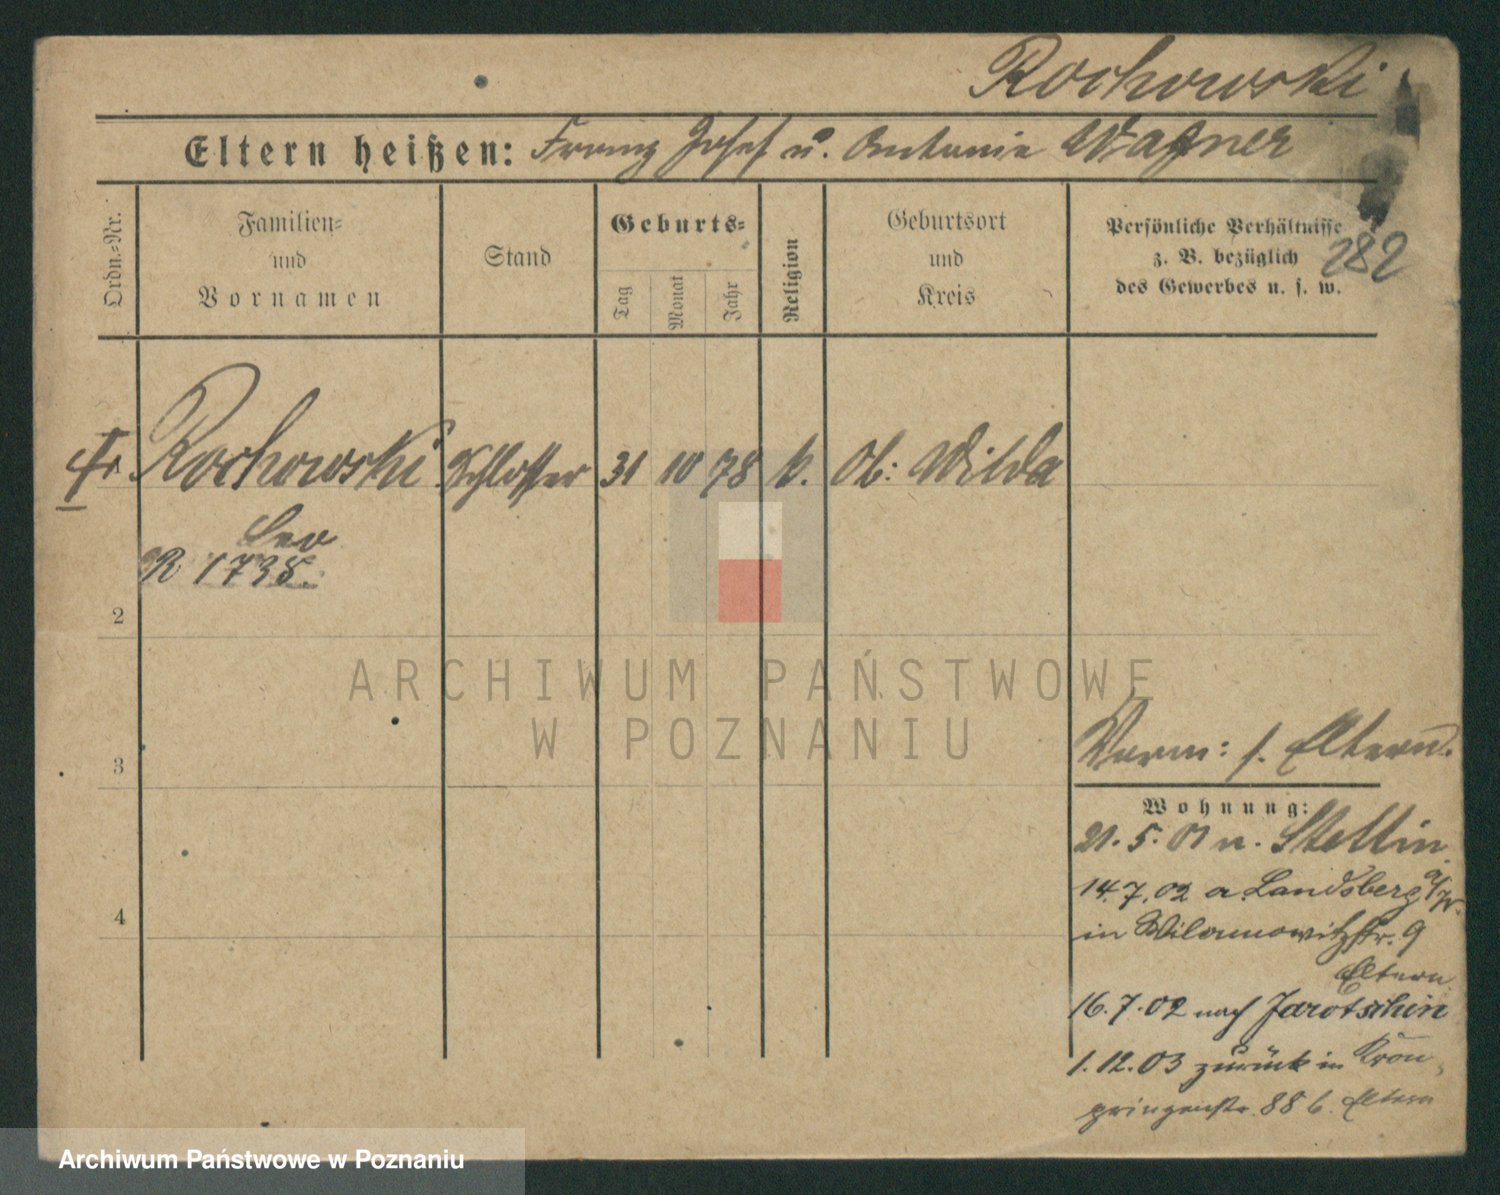 Rochowski
Eltern heißen: Franz Josef u. Antonie Wagner
Ordn.-Nr.
Familien-
und
Vornamen
Stand
Geburts-
Tag
Monat
Jahr
Religion
Geburtsort
und
Kreis
Persönliche Verhältnisse
z. B. bezüglich
des Gewerbes u. s. w.
282
Rochowski Schlosser 31 10 78 k. Ob: Wilda
Leo
R 1738.
2
ARCHIWUM PAŃSTWOWE
W POZNANIU
3
Vorm: s. Eltern.
Wohnung:
21. 5. 01 n. Stettin
14. 7. 02 a Landsberg a/W.
in Wilamowitzstr. 9
Eltern
4
16. 7. 02 nach Jarotschin
1. 12. 03 zurück in Kron-
prinzenstr. 88 b. Eltern
Archiwum Państwowe w Poznaniu